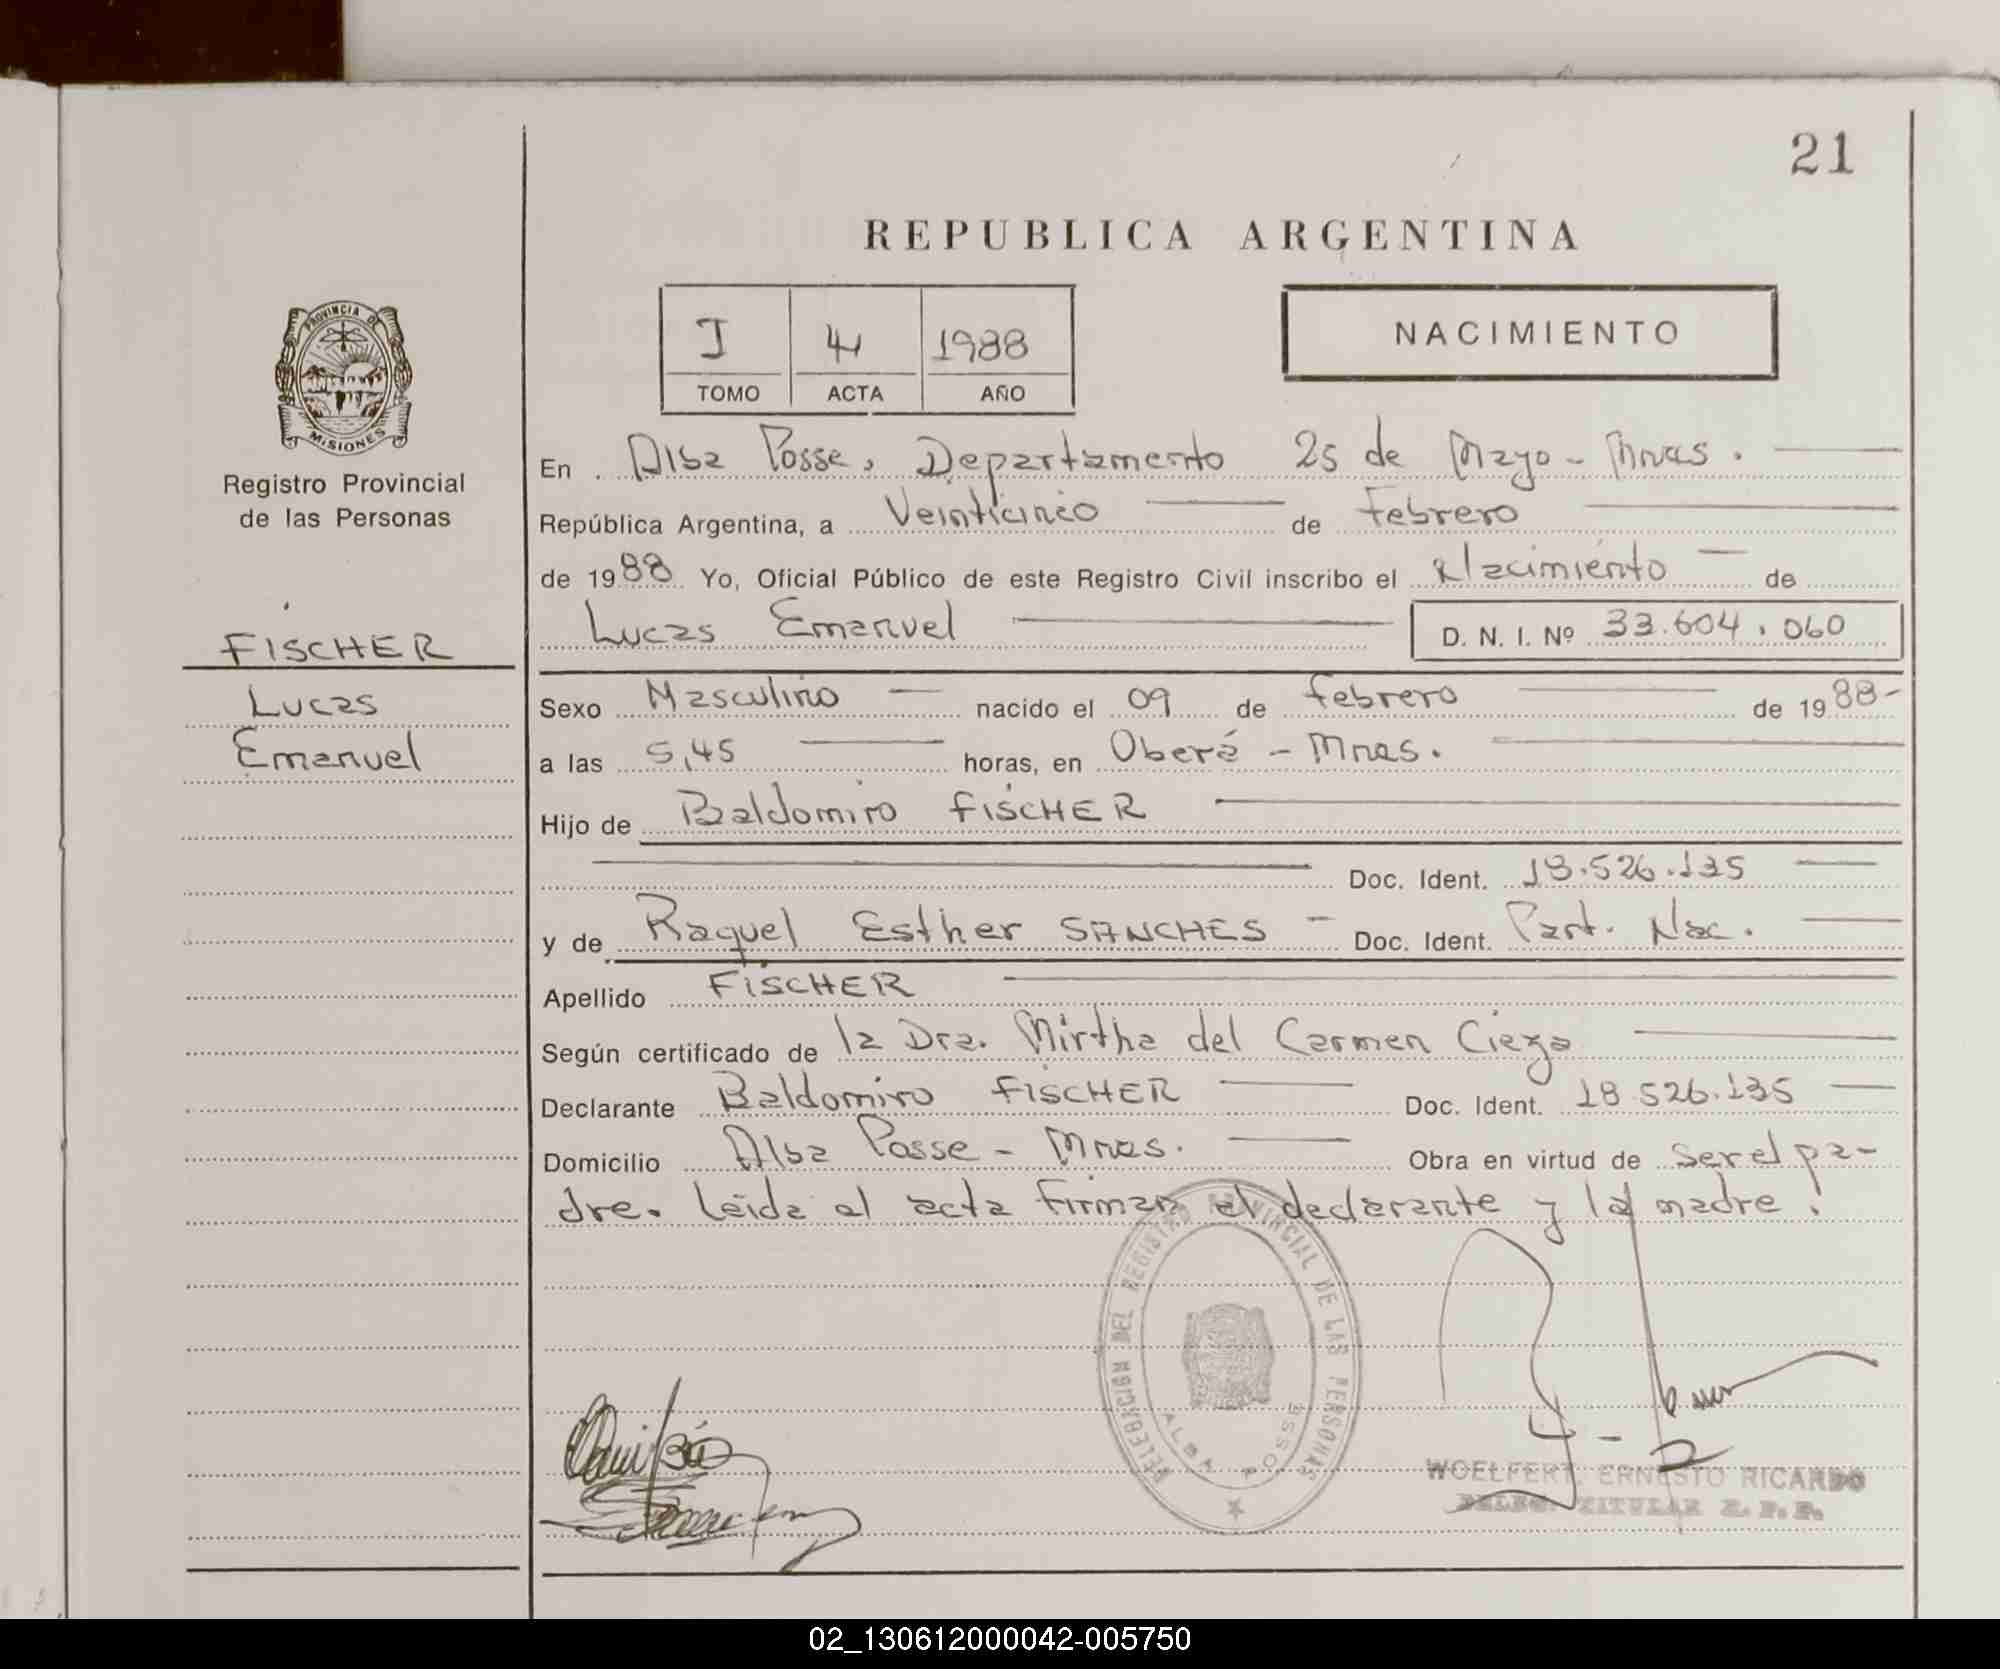 21
REPUBLICA ARGENTINA
I 4 1988
TOMO ACTA AÑO
NACIMIENTO
PROVINCIA DE
MISIONES
Registro Provincial
de las Personas
FISCHER
Lucas
Emanuel
En Alba Posse, Departamento 25 de Mayo - Mnes.
República Argentina, a Veinticinco de Febrero
de 1988 Yo, Oficial Público de este Registro Civil inscribo el Nacimiento de
Lucas Emanuel D. N. I. Nº 33.604.060
Sexo Masculino nacido el 09 de Febrero de 1988-
a las 5,45 horas, en Oberá - Mnes.
Hijo de Baldomiro FISCHER
Doc. Ident. 18.526.135
y de Raquel Esther SANCHES - Doc. Ident. Part. Nac.
Apellido FISCHER
Según certificado de la Dra. Mirtha del Carmen Cieza
Declarante Baldomiro FISCHER Doc. Ident. 18.526.135
Domicilio Alba Posse - Mnes. Obra en virtud de ser el pa-
dre. Leida el acta firman el declarante y la madre.
DELEGACION DEL REGISTRO PROVINCIAL DE LAS PERSONAS
ALBA POSSE
WOELFERT, ERNESTO RICARDO
DELEG. TITULAR R. P. P.
02_130612000042-005750